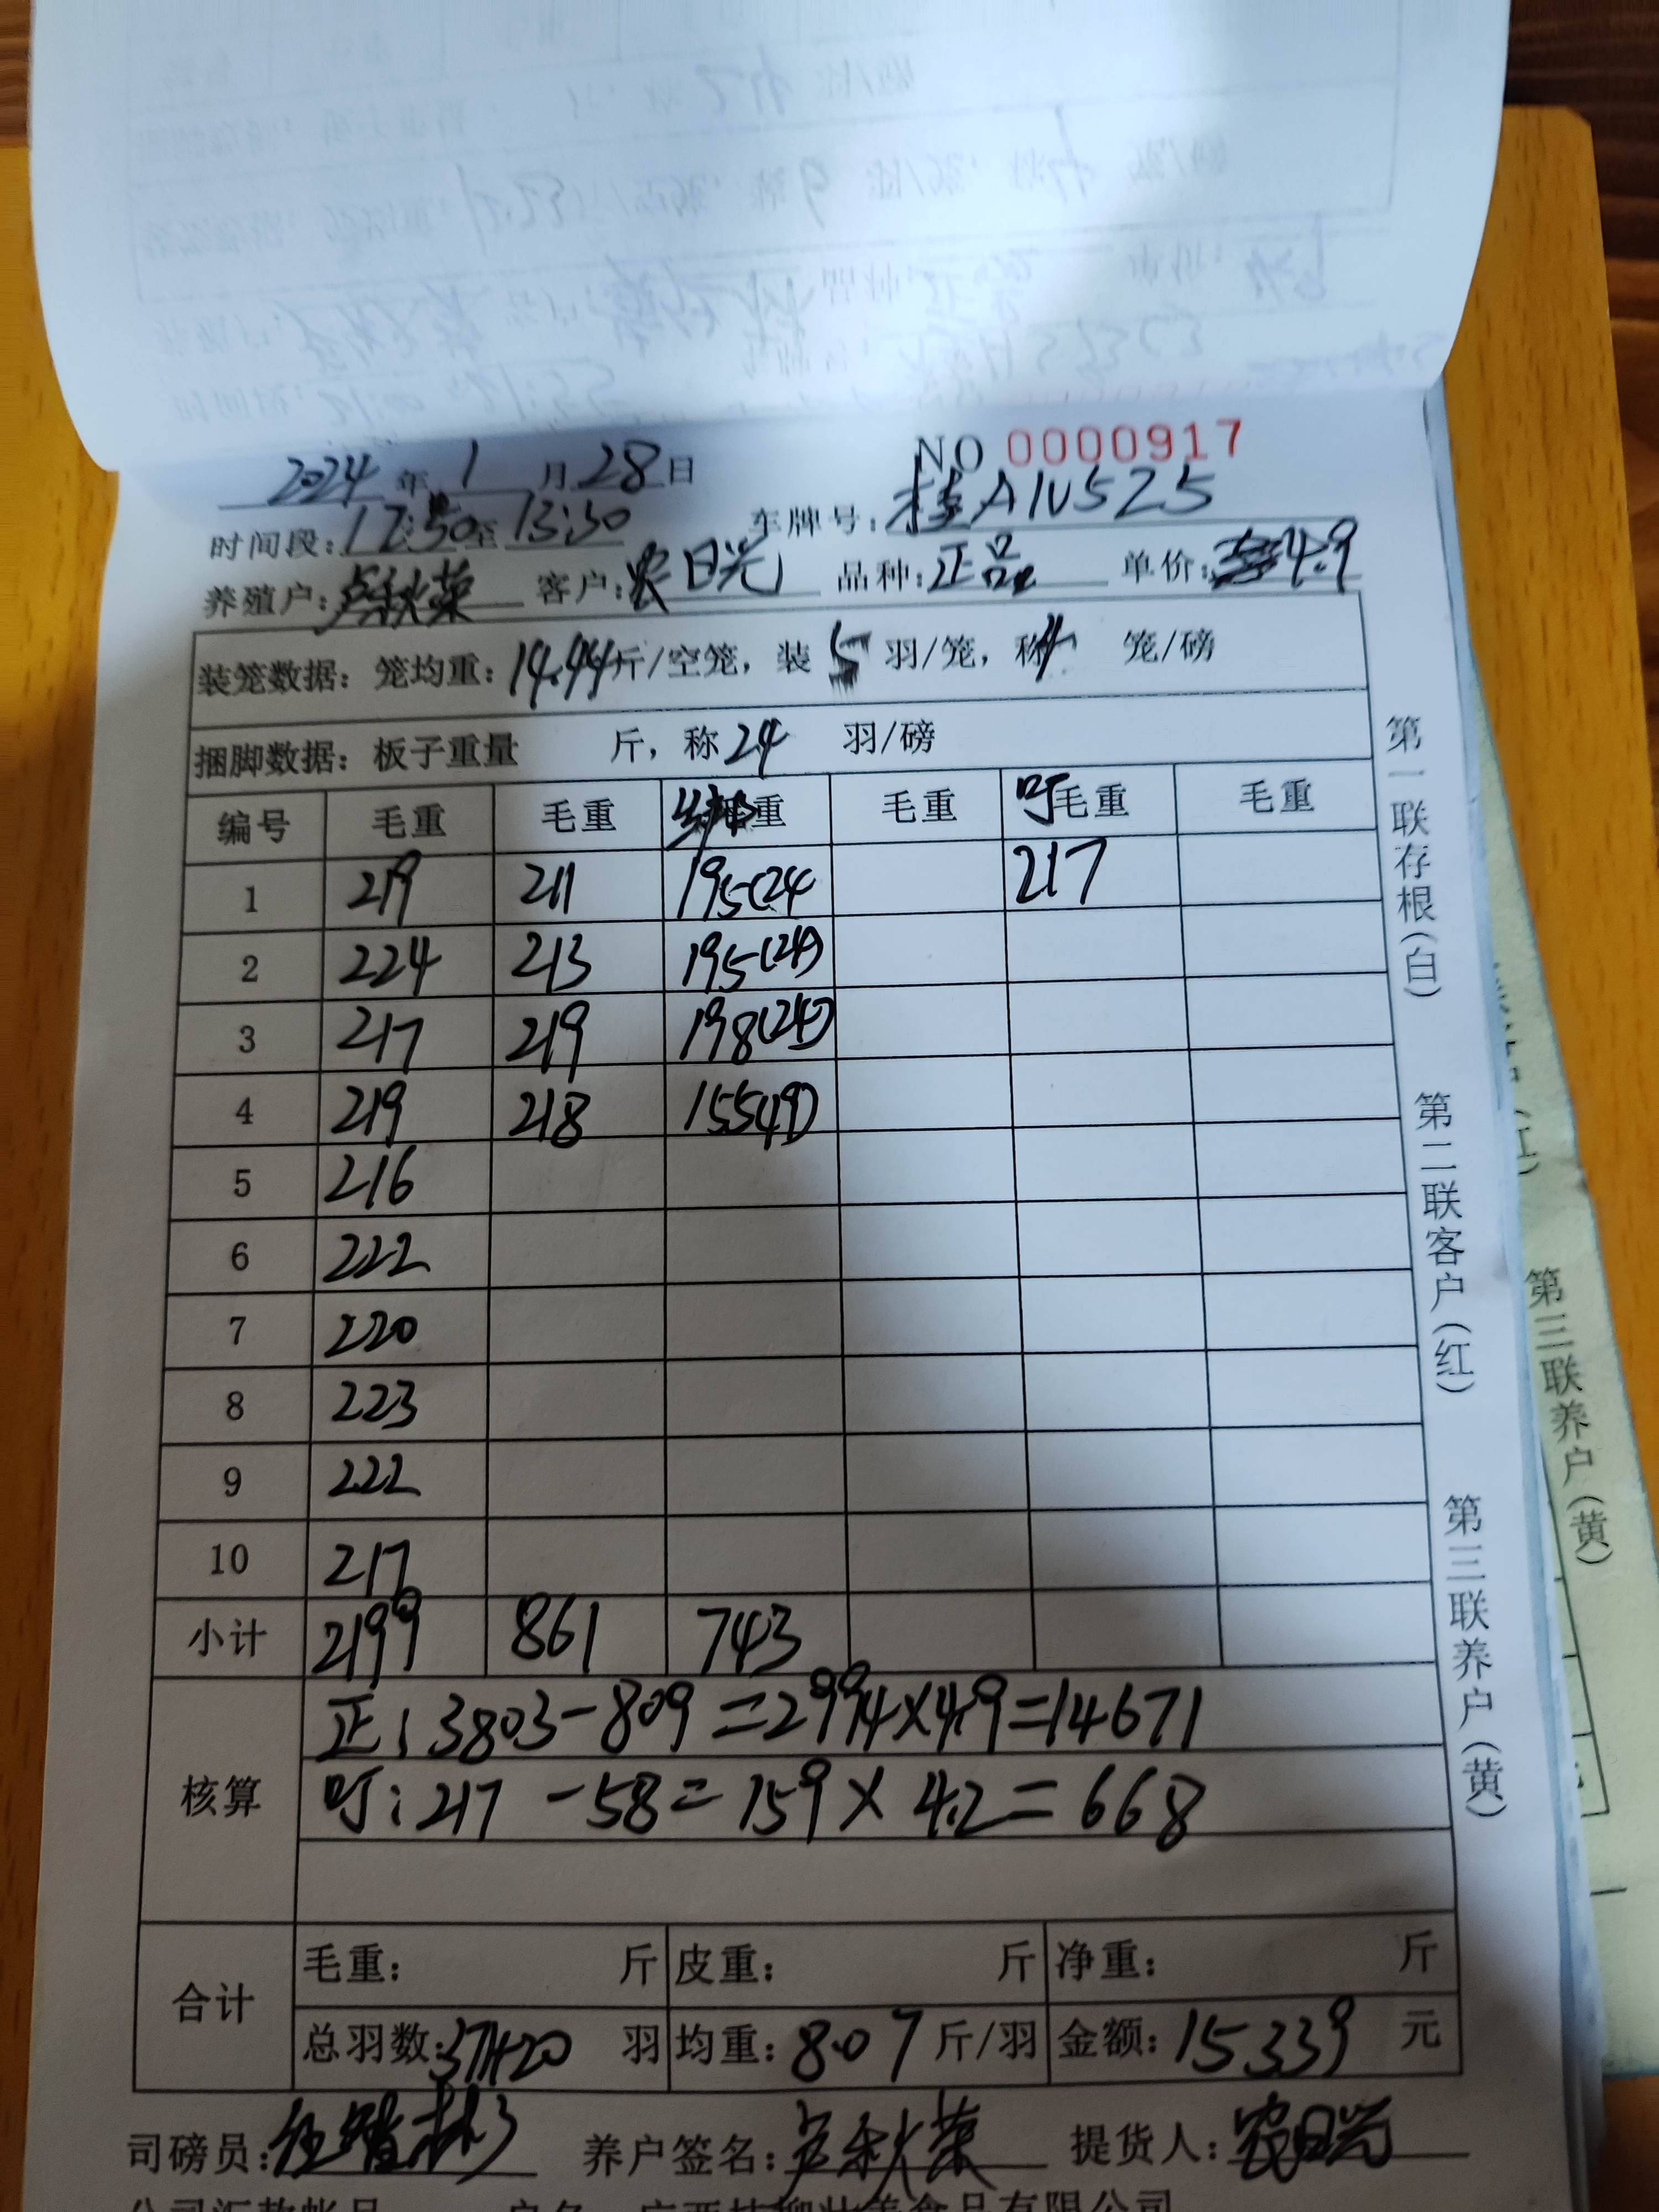 NO 0000917
2024年1月28日
时间段:12:50至13:30 车牌号:桂A1U525
养殖户:卢秋荣 客户:农日光 品种:正品 单价:4.9
装笼数据: 笼均重:14.44斤/空笼, 装5羽/笼, 称4笼/磅
捆脚数据: 板子重量 斤, 称24羽/磅
编号 毛重 毛重 毛重 毛重 叮毛重 毛重
1 219 211 195(24 217
2 224 213 195(24)
3 217 219 198(24)
4 219 218 155(19)
5 216
6 222
7 220
8 223
9 222
10 217
小计 2199 861 743
核算
正:3803-809=2994×4.9=14671
叮:217-58=159×4.2=668
合计
毛重: 斤 皮重: 斤 净重: 斤
总羽数:371+20羽 均重:8.07斤/羽 金额:15339元
司磅员: 养户签名:卢秋荣 提货人:农日光
第一联存根(白) 第二联客户(红) 第三联养户(黄)
第三联养户(黄)